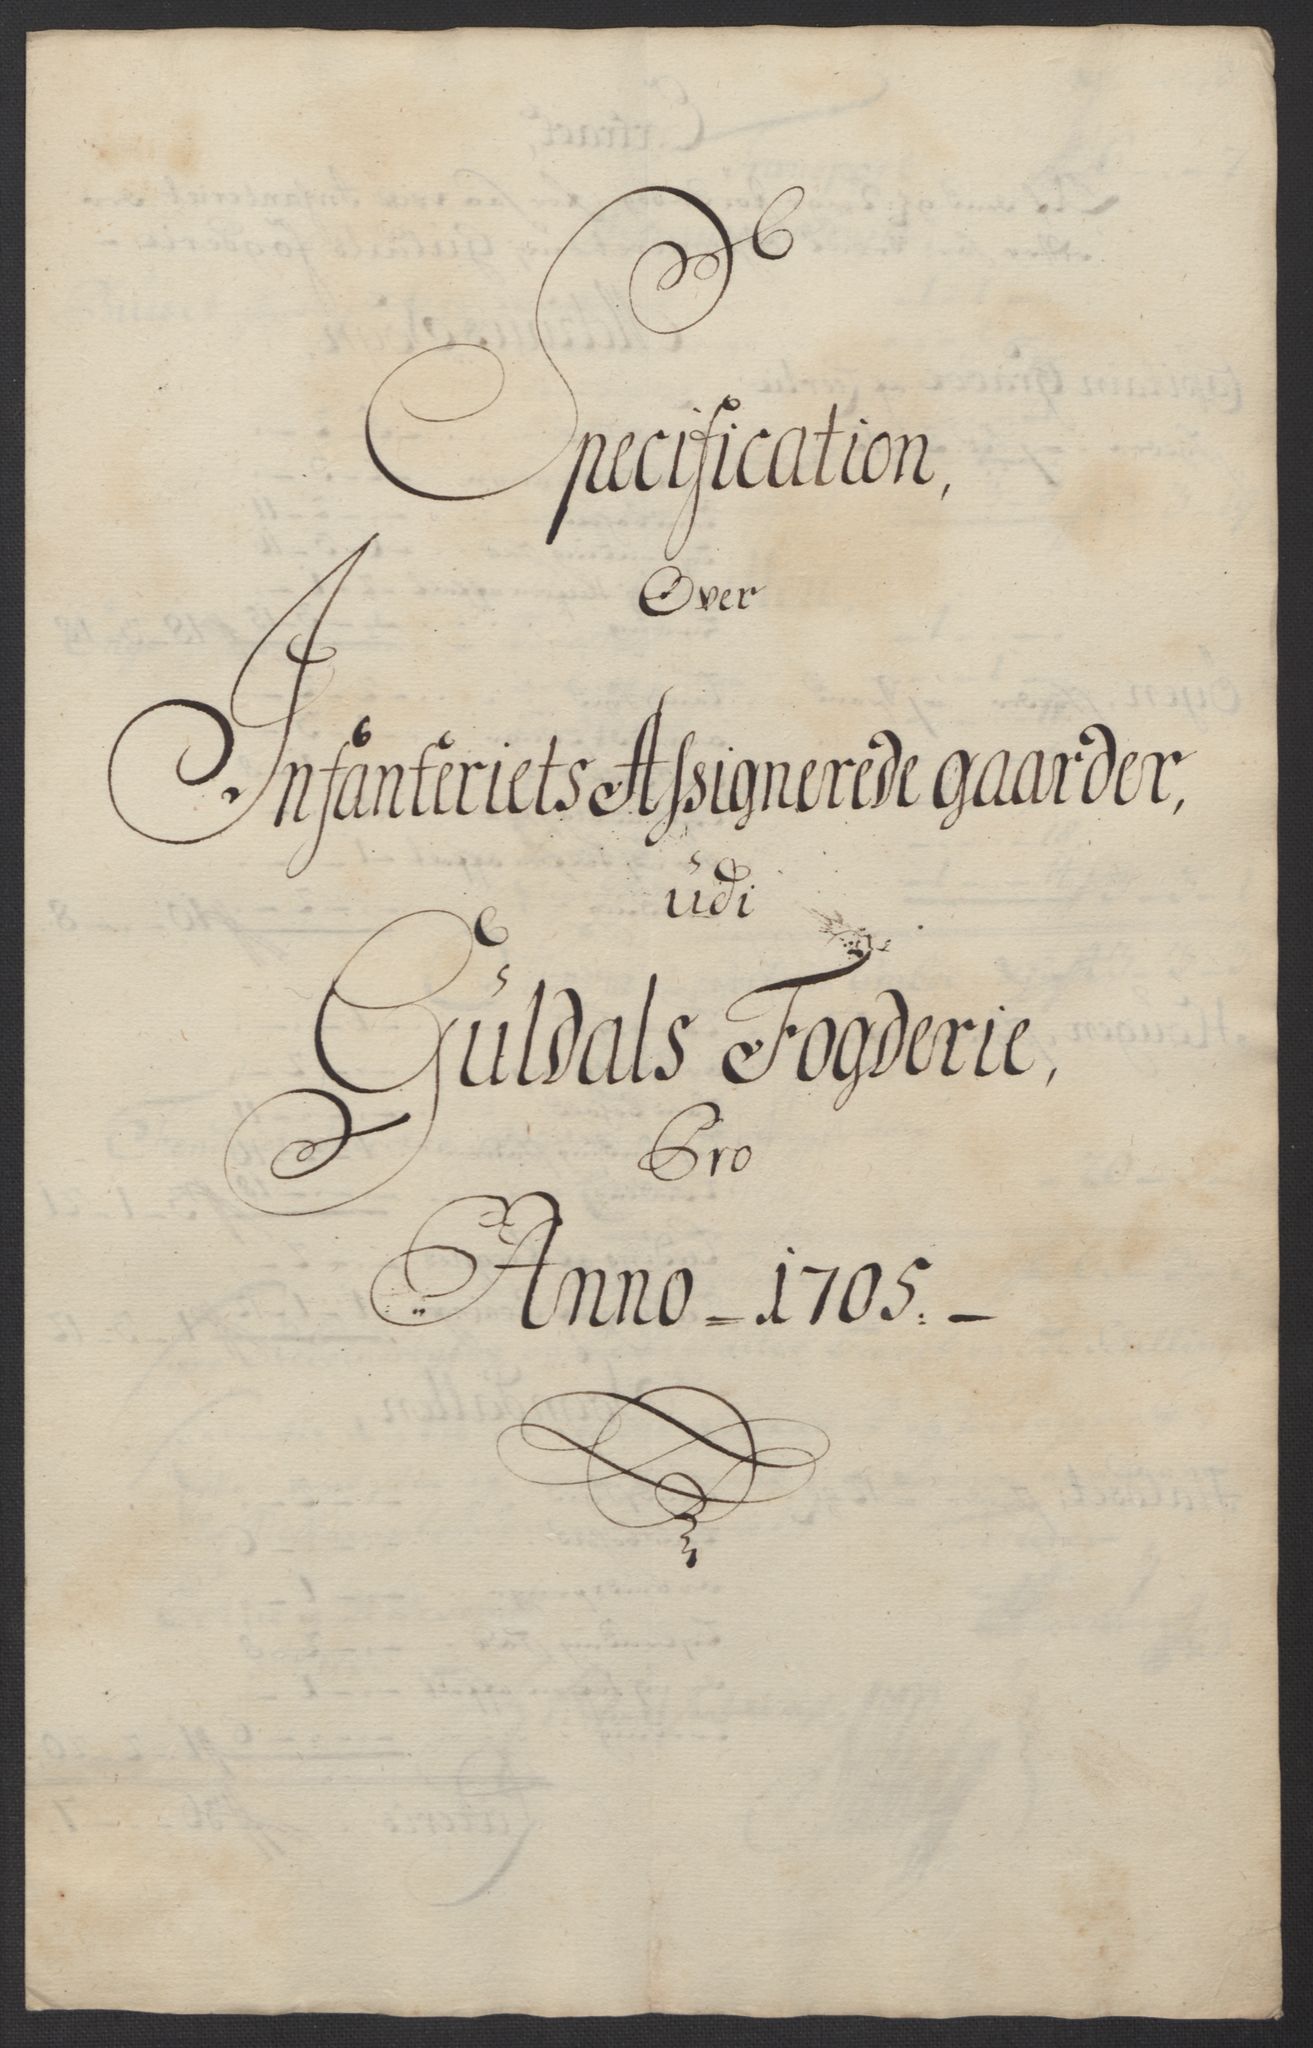 Specification,
Over
Infanteriets Assignerede gaarder,
udi
Guldals Fogderie,
Pro
Anno = 1705. –